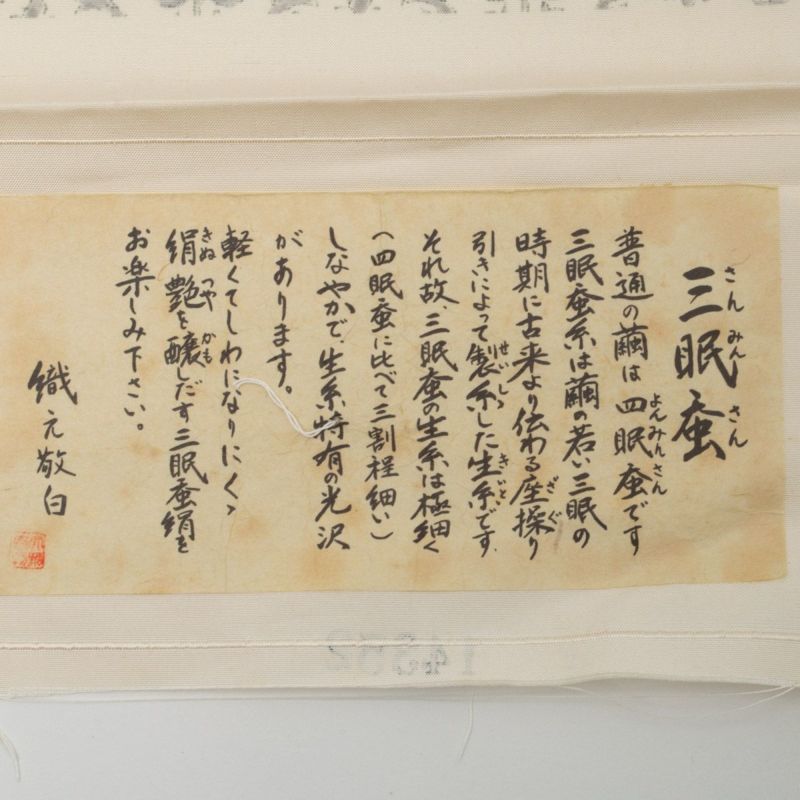 三眠蚕
さんみんさん
普通の繭は四眠蚕です
よんみんさん
三眠蚕糸は繭の若い三眠の
時期に古来より伝わる座操り
ざぐ
引きによって製糸した生糸です。
せいし
きいと
それ故、三眠蚕の生糸は極細く
(四眠蚕に比べて三割程細い)
しなやかで、生糸特有の光沢
があります。
軽くてしわになりにくゝ
絹艶を醸しだす三眠蚕絹を
きぬ つや かも
お楽しみ下さい。
織元敬白
14362